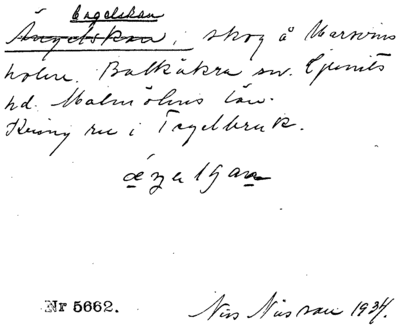 Engelskan
Ängelskan, skog å Marsvins
holm. Balkåkra sn. Ljunits
hd. Malmöhus län.
i Tegelbruk.
Nr 5662.
Nils Nilsson 1934.